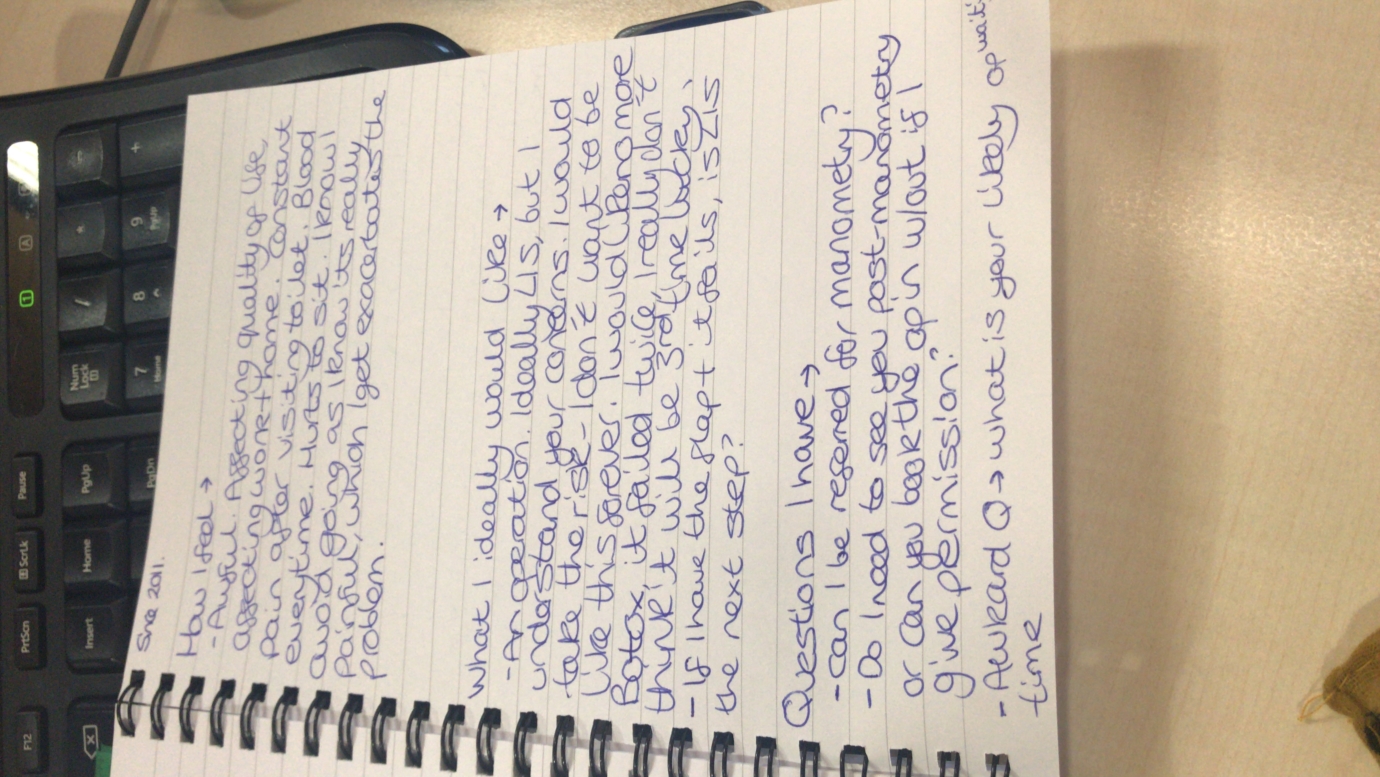 How I feel →
- Awful. Affecting quality of life,
affecting work + home. Constant
pain after visiting toilet. Blood
everytime. Hurts to sit. I know I
avoid going as I know its really
painful, which I get exacerbates the
problem.
What I ideally would like →
- An operation. Ideally LIS, but I
understand your concerns. I would
take the risk - I don't want to be
like this forever. I would like no more
Botox, it failed twice, I really don't
think it will be 3rd time lucky.
- If I have the flap + it fails, is LIS
the next step?
Questions I have →
- Can I be referred for manometry?
- Do I need to see you post-manometry
or can you book the op in w/out if I
give permission?
- Awkward Q → what is your likely op wait
time
Pause
ScrLk
PrtScn
F12
PgUp
Home
Insert
PgDn
Num
Lock
/
*
-
7
Home
8
9
PgUp
+
1
A